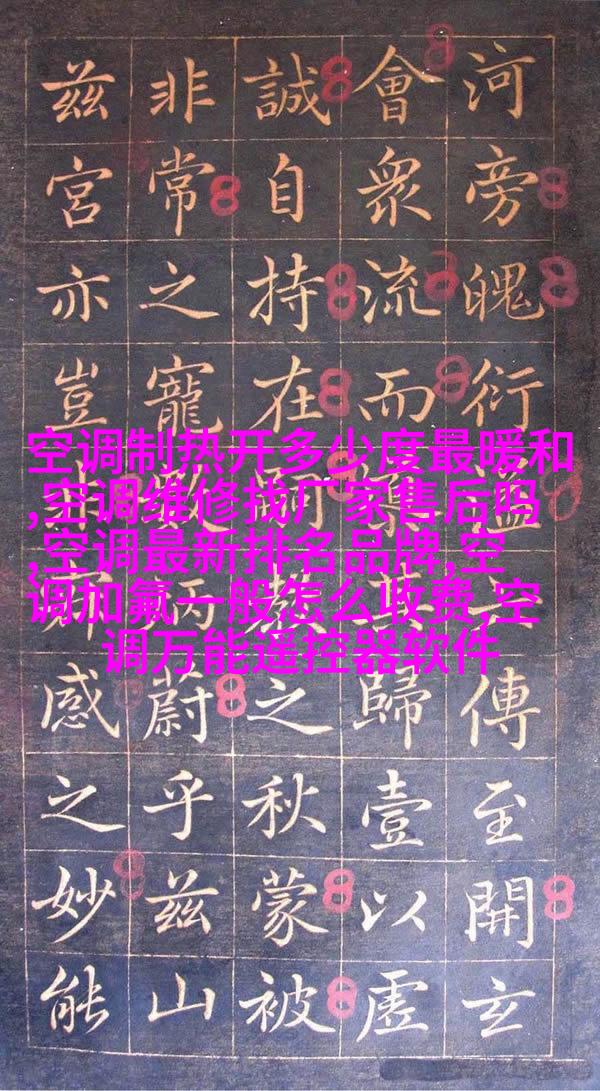 河旁魄衍傳至開玄
會眾流而歸壹以虛
誠自持在之秋蒙被
非常之寵蔚乎茲山
茲宮亦豈感之妙能
空调制热开多少度最暖和
,空调维修找厂家售后吗
,空调最新排名品牌,空
调加氟一般怎么收费,空
调万能遥控器软件